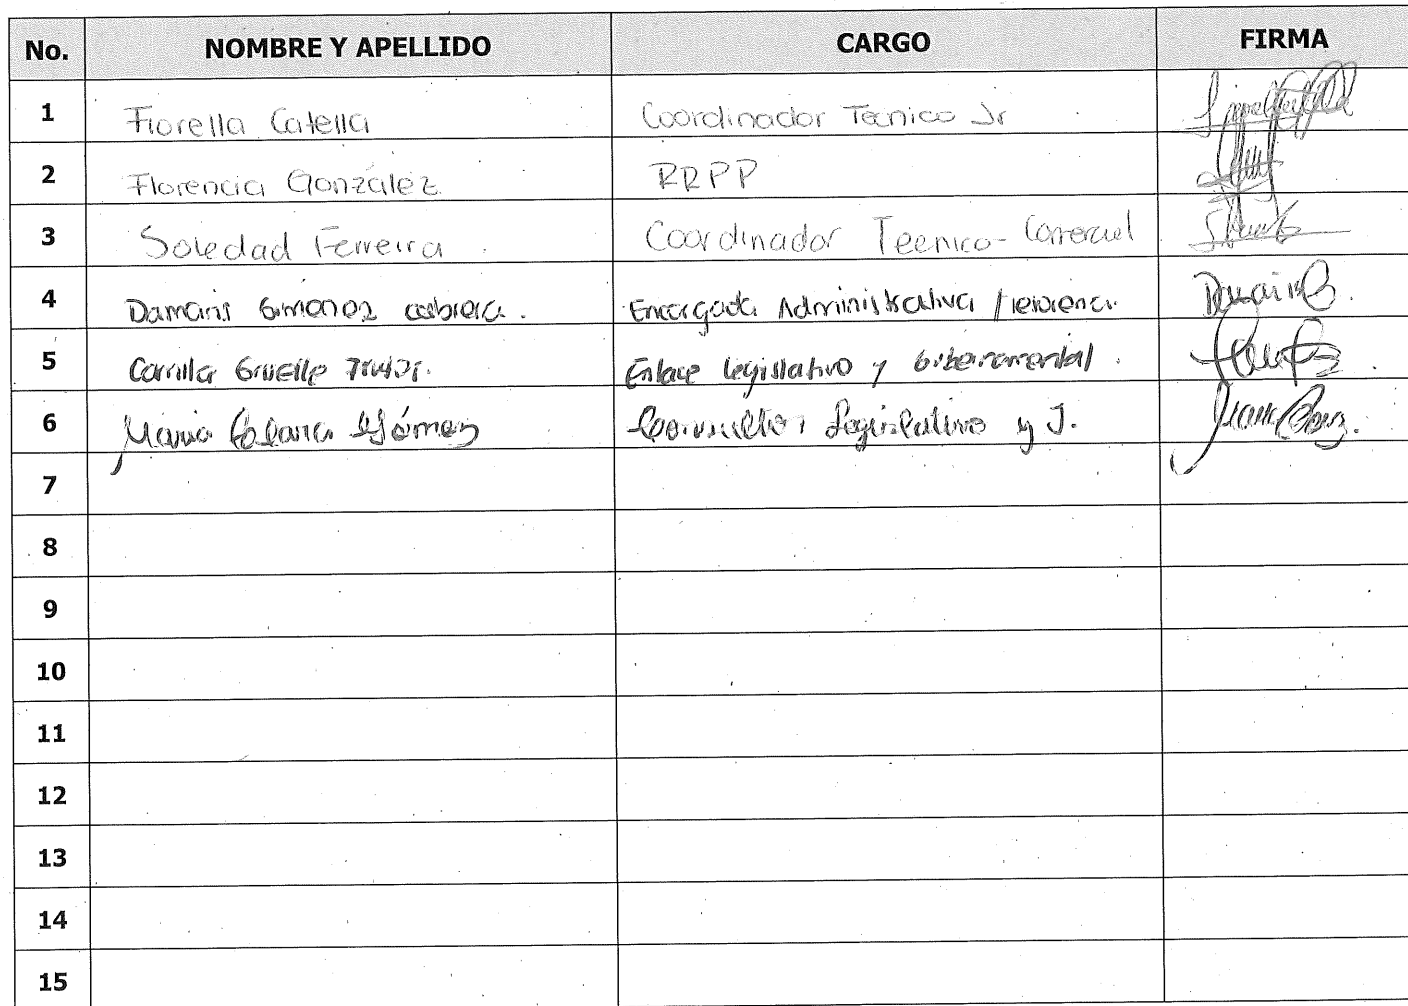 No. NOMBRE Y APELLIDO CARGO FIRMA
1 Fiorella Catella Coordinador Tecnico Jr
2 Florencia González RRPP
3 Soledad Ferreira Coordinador Tecnico - Comercial
4 Damaris Gimenez Cabrera. Encargada Administrativa /
5 Camila Enlace legislativo y Gubernamental.
6 Gómez Legislativo y J.
7
8
9
10
11
12
13
14
15